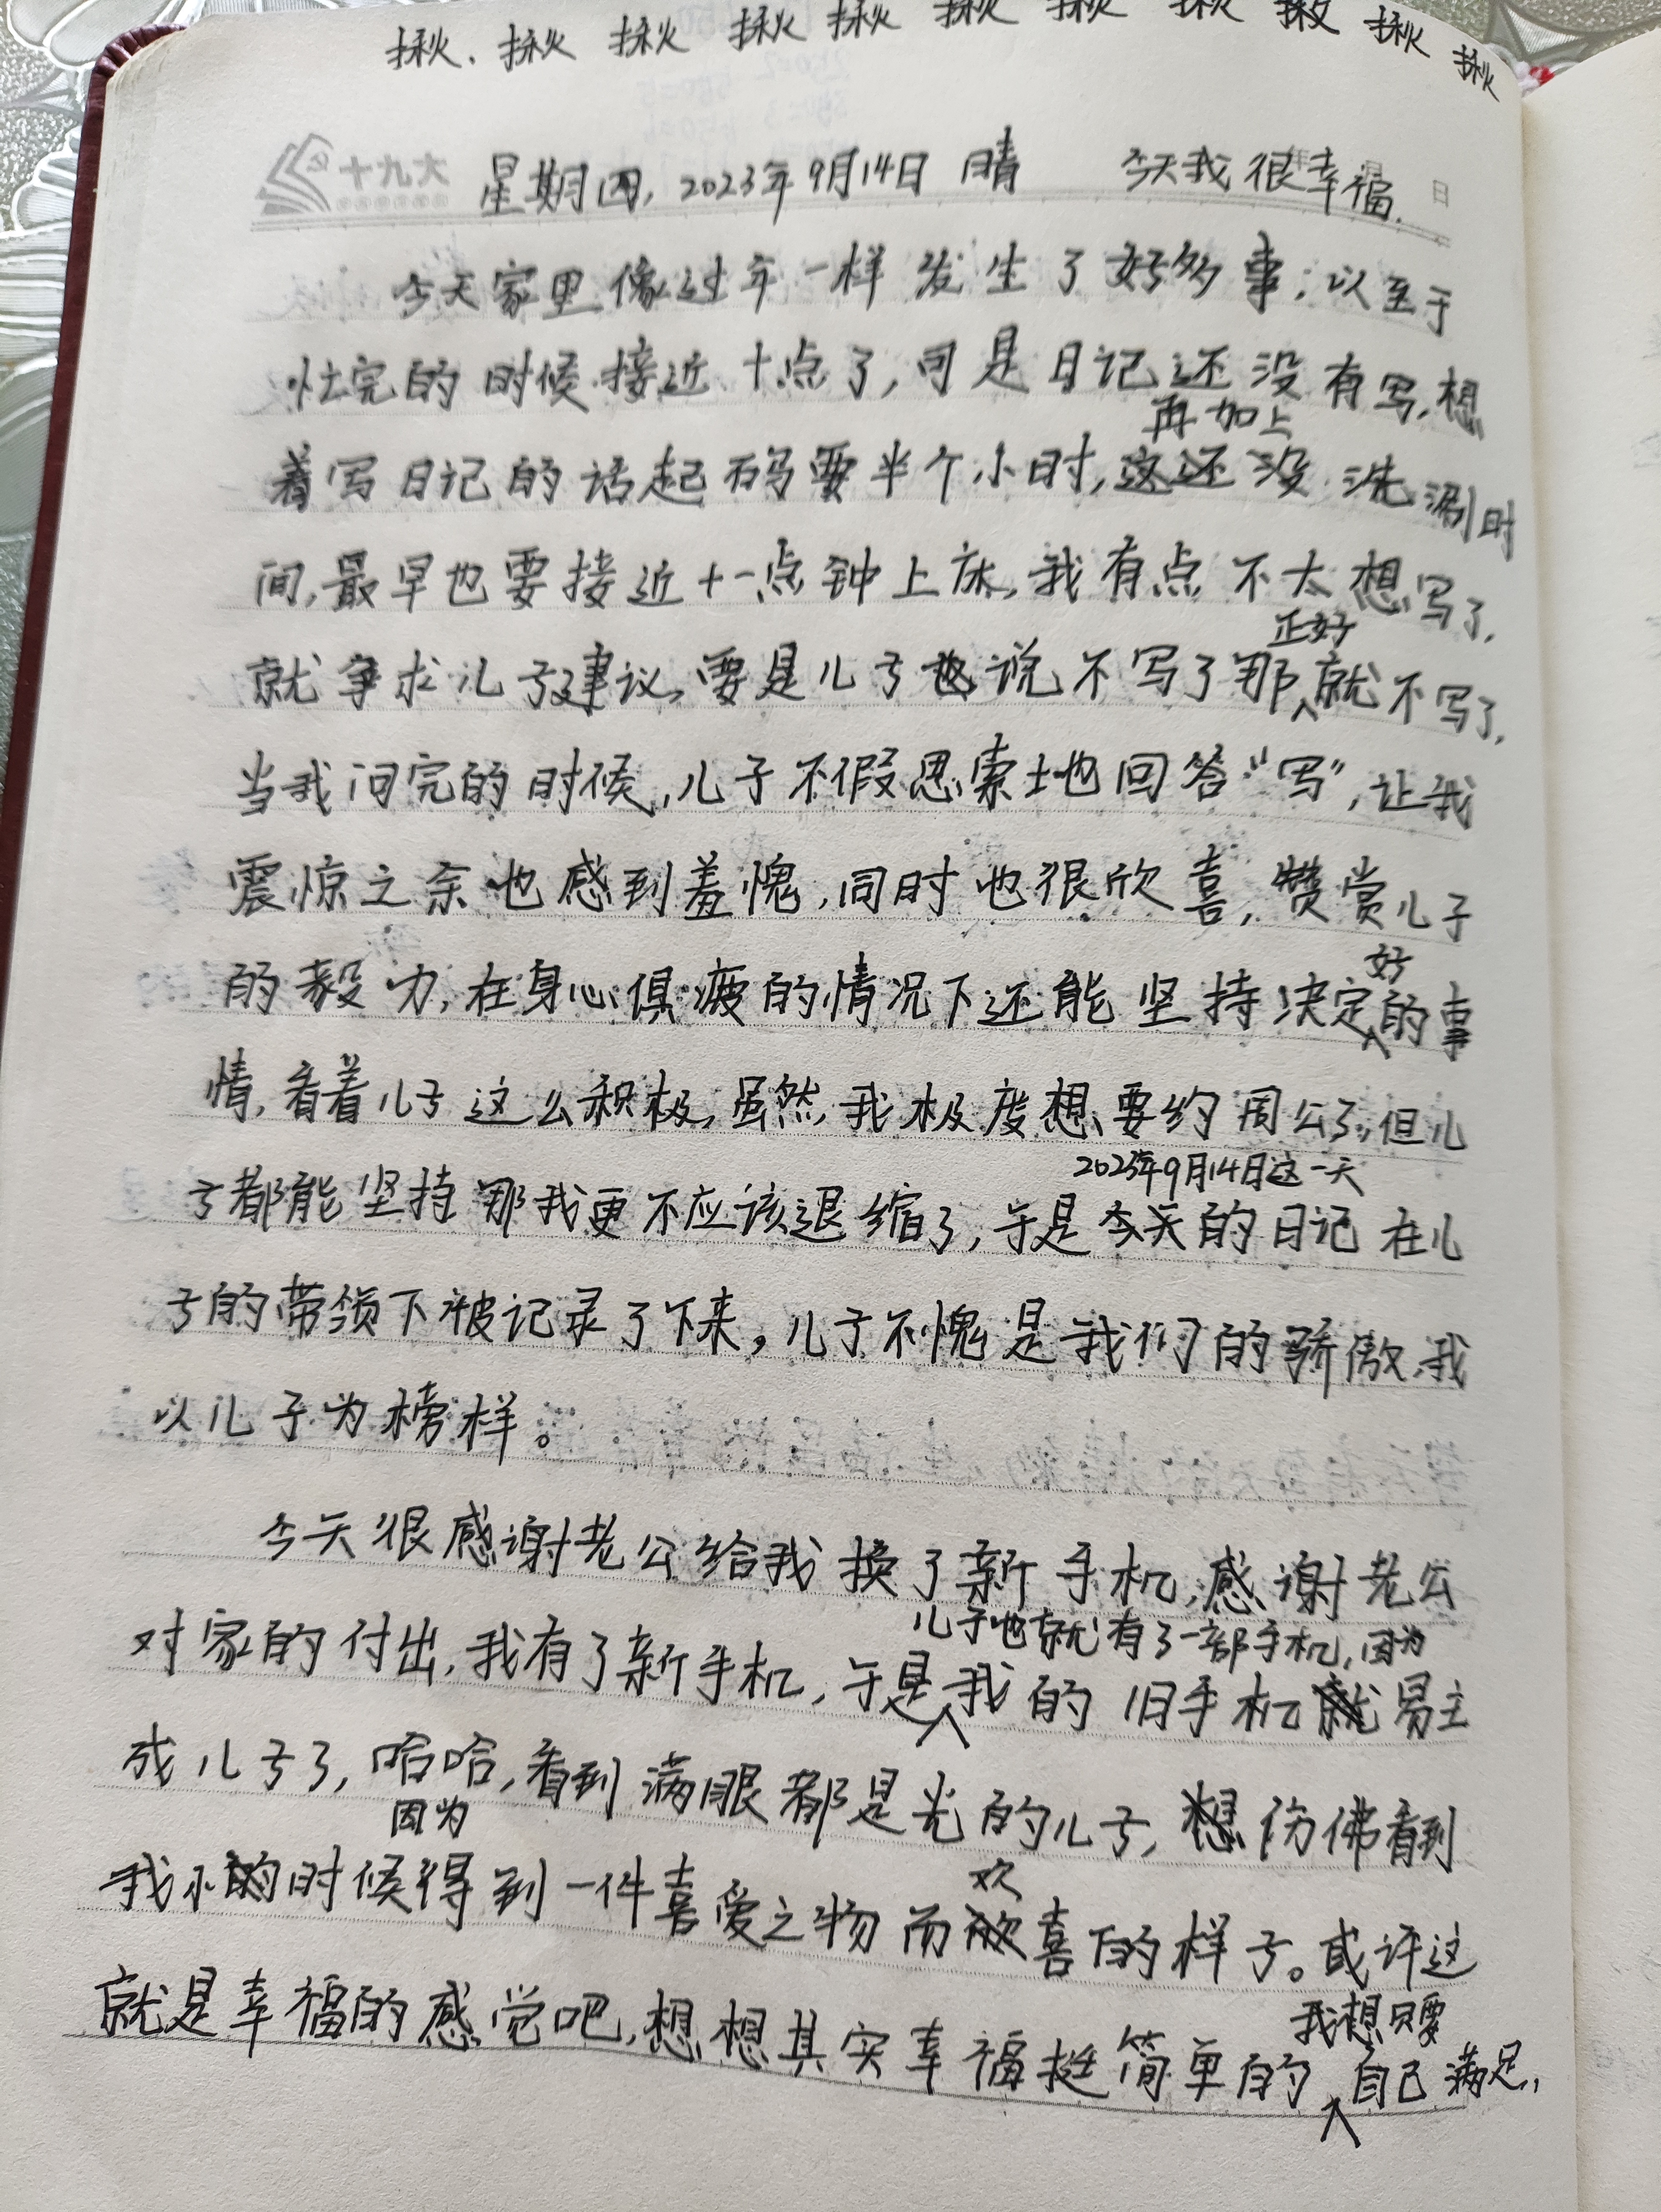 揪、揪 揪 揪 揪 揪 揪 揪 揪 揪
十九大 星期四, 2023年9月14日 晴 今天我很幸福. 日
今天家里像过年一样发生了好多事;以至于
忙完的时候接近十点了,可是日记还没有写,想
再加上
着写日记的话起码要半个小时,这还没洗涮时
间,最早也要接近十一点钟上床,我有点不太想写了,
正好
就争求儿子建议,要是儿子也说不写了那就不写了,
当我问完的时候,儿子不假思索地回答“写”,让我
震惊之余也感到羞愧,同时也很欣喜,赞赏儿子
好
的毅力,在身心俱疲的情况下还能坚持决定的事
情,看着儿子这么积极,虽然我极度想要约周公了,但儿
2023年9月14日这一天
子都能坚持那我更不应该退缩了,于是今天的日记在儿
子的带领下被记录了下来,儿子不愧是我们的骄傲,我
以儿子为榜样。
今天很感谢老公给我换了新手机,感谢老公
儿子也就有了一部手机,因为
对家的付出,我有了新手机,于是我的旧手机就易主
成儿子了,哈哈,看到满眼都是光的儿子,想仿佛看到
因为
我小的时候得到一件喜爱之物而欣喜的样子。或许这
欢
就是幸福的感觉吧,想想其实幸福挺简单的自己满足,
我想只要